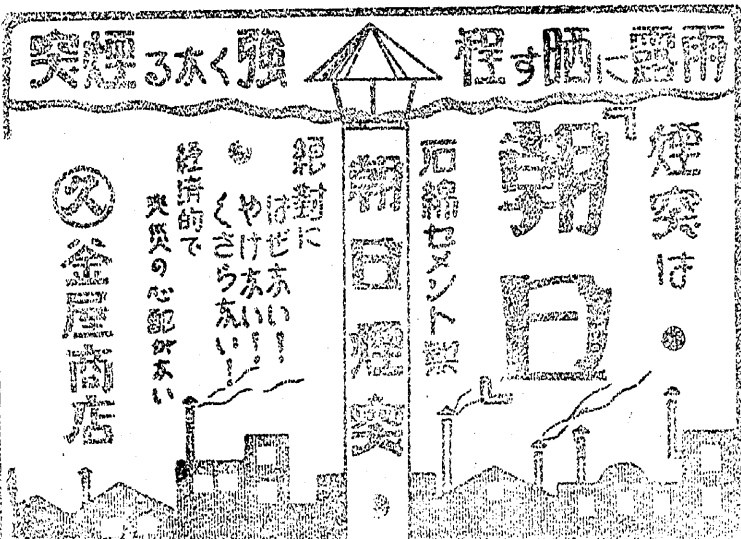 雨露に晒す程
強くなる煙突
煙突は
「朝日」
石綿セメント製
朝日煙突
絶対に
はぜない!
やけない!!
くさらない!
経済的で
火災の心配がない
久 釜屋商店